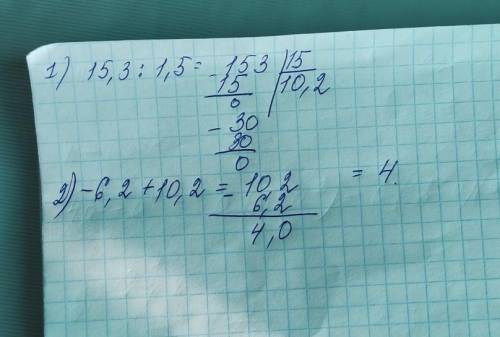 1) 15,3 : 1,5 = 153 | 15
- 15 | 10,2
0
- 30
30
0
2) -6,2 + 10,2 = 10,2 = 4.
- 6,2
4,0